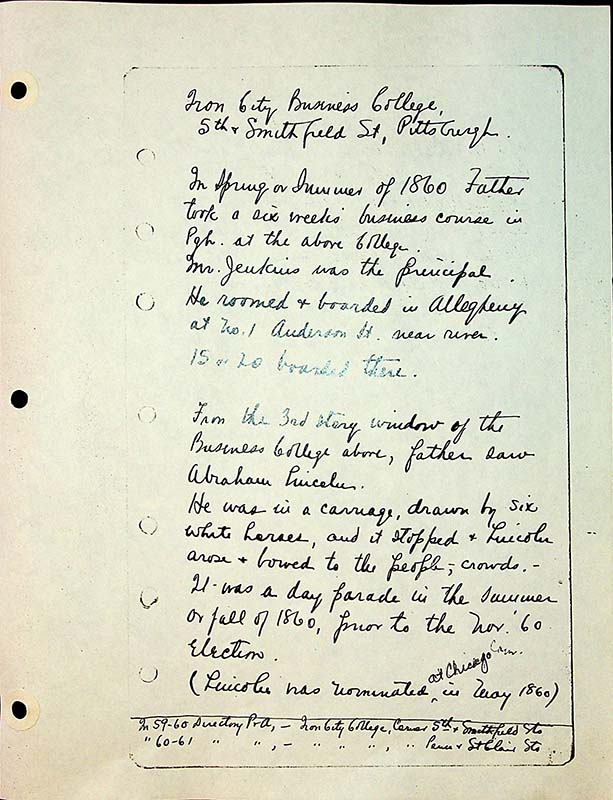 Iron City Business College,
5th & Smithfield St, Pittsburgh.
In Spring or Summer of 1860 Father
took a six weeks business course in
Pgh. at the above College.
Mr. Jenkins was the principal.
He roomed & boarded in Allegheny
at No. 1 Anderson St. near river.
15 or 20 boarded there.
From the 3rd story window of the
Business College above, father saw
Abraham Lincoln.
He was in a carriage, drawn by six
white horses, and it stopped & Lincoln
arose & bowed to the people, crowds. -
It was a day parade in the summer
or fall of 1860, prior to the Nov. '60
Election.
at Chicago Conv.
(Lincoln was nominated ^ in May 1860)
In 59-60 Directory - Iron City College, Corner 5th & Smithfield Sts
" 60-61 " " " , - " " " , " Penn & St Clair Sts